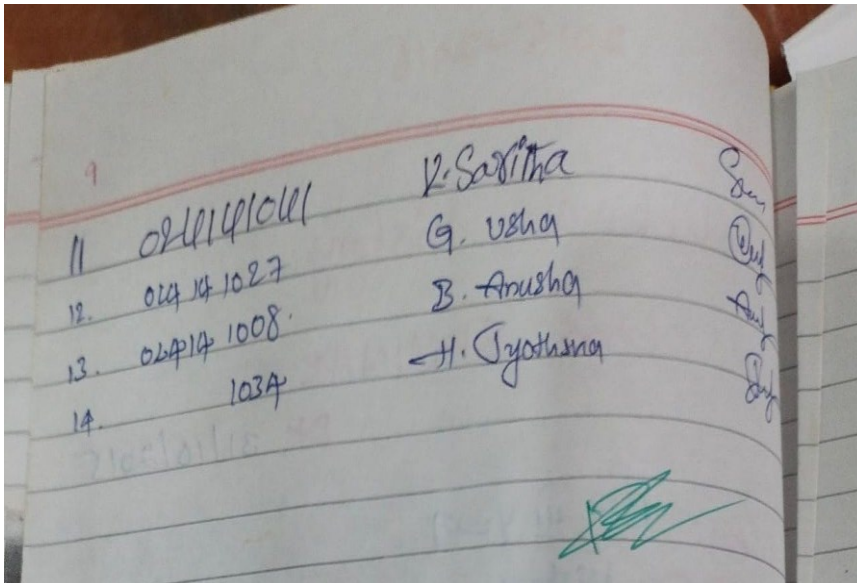 9
11 024141041 K. Saritha
12. 024141027 G. Usha
13. 024141008. B. Anusha
14. 1034 H. Jyothsna